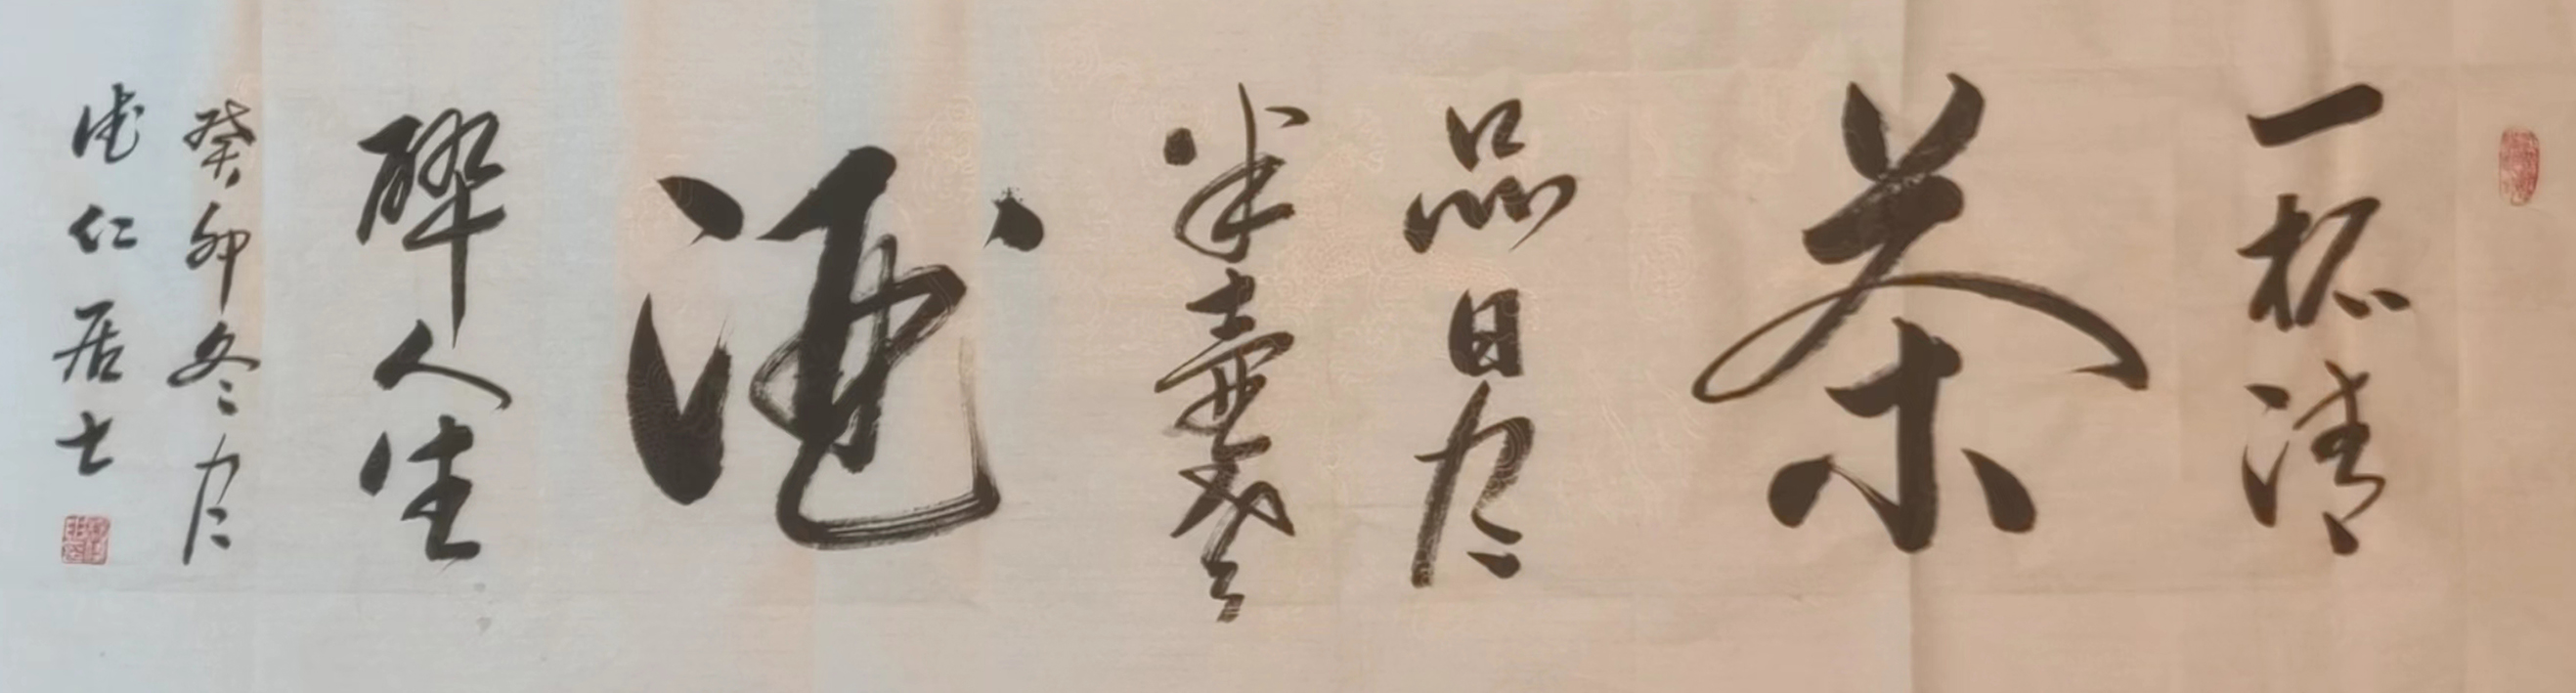 一杯清
茶
品日月
半壶老
酒
醉人生
癸卯冬月
仁居士